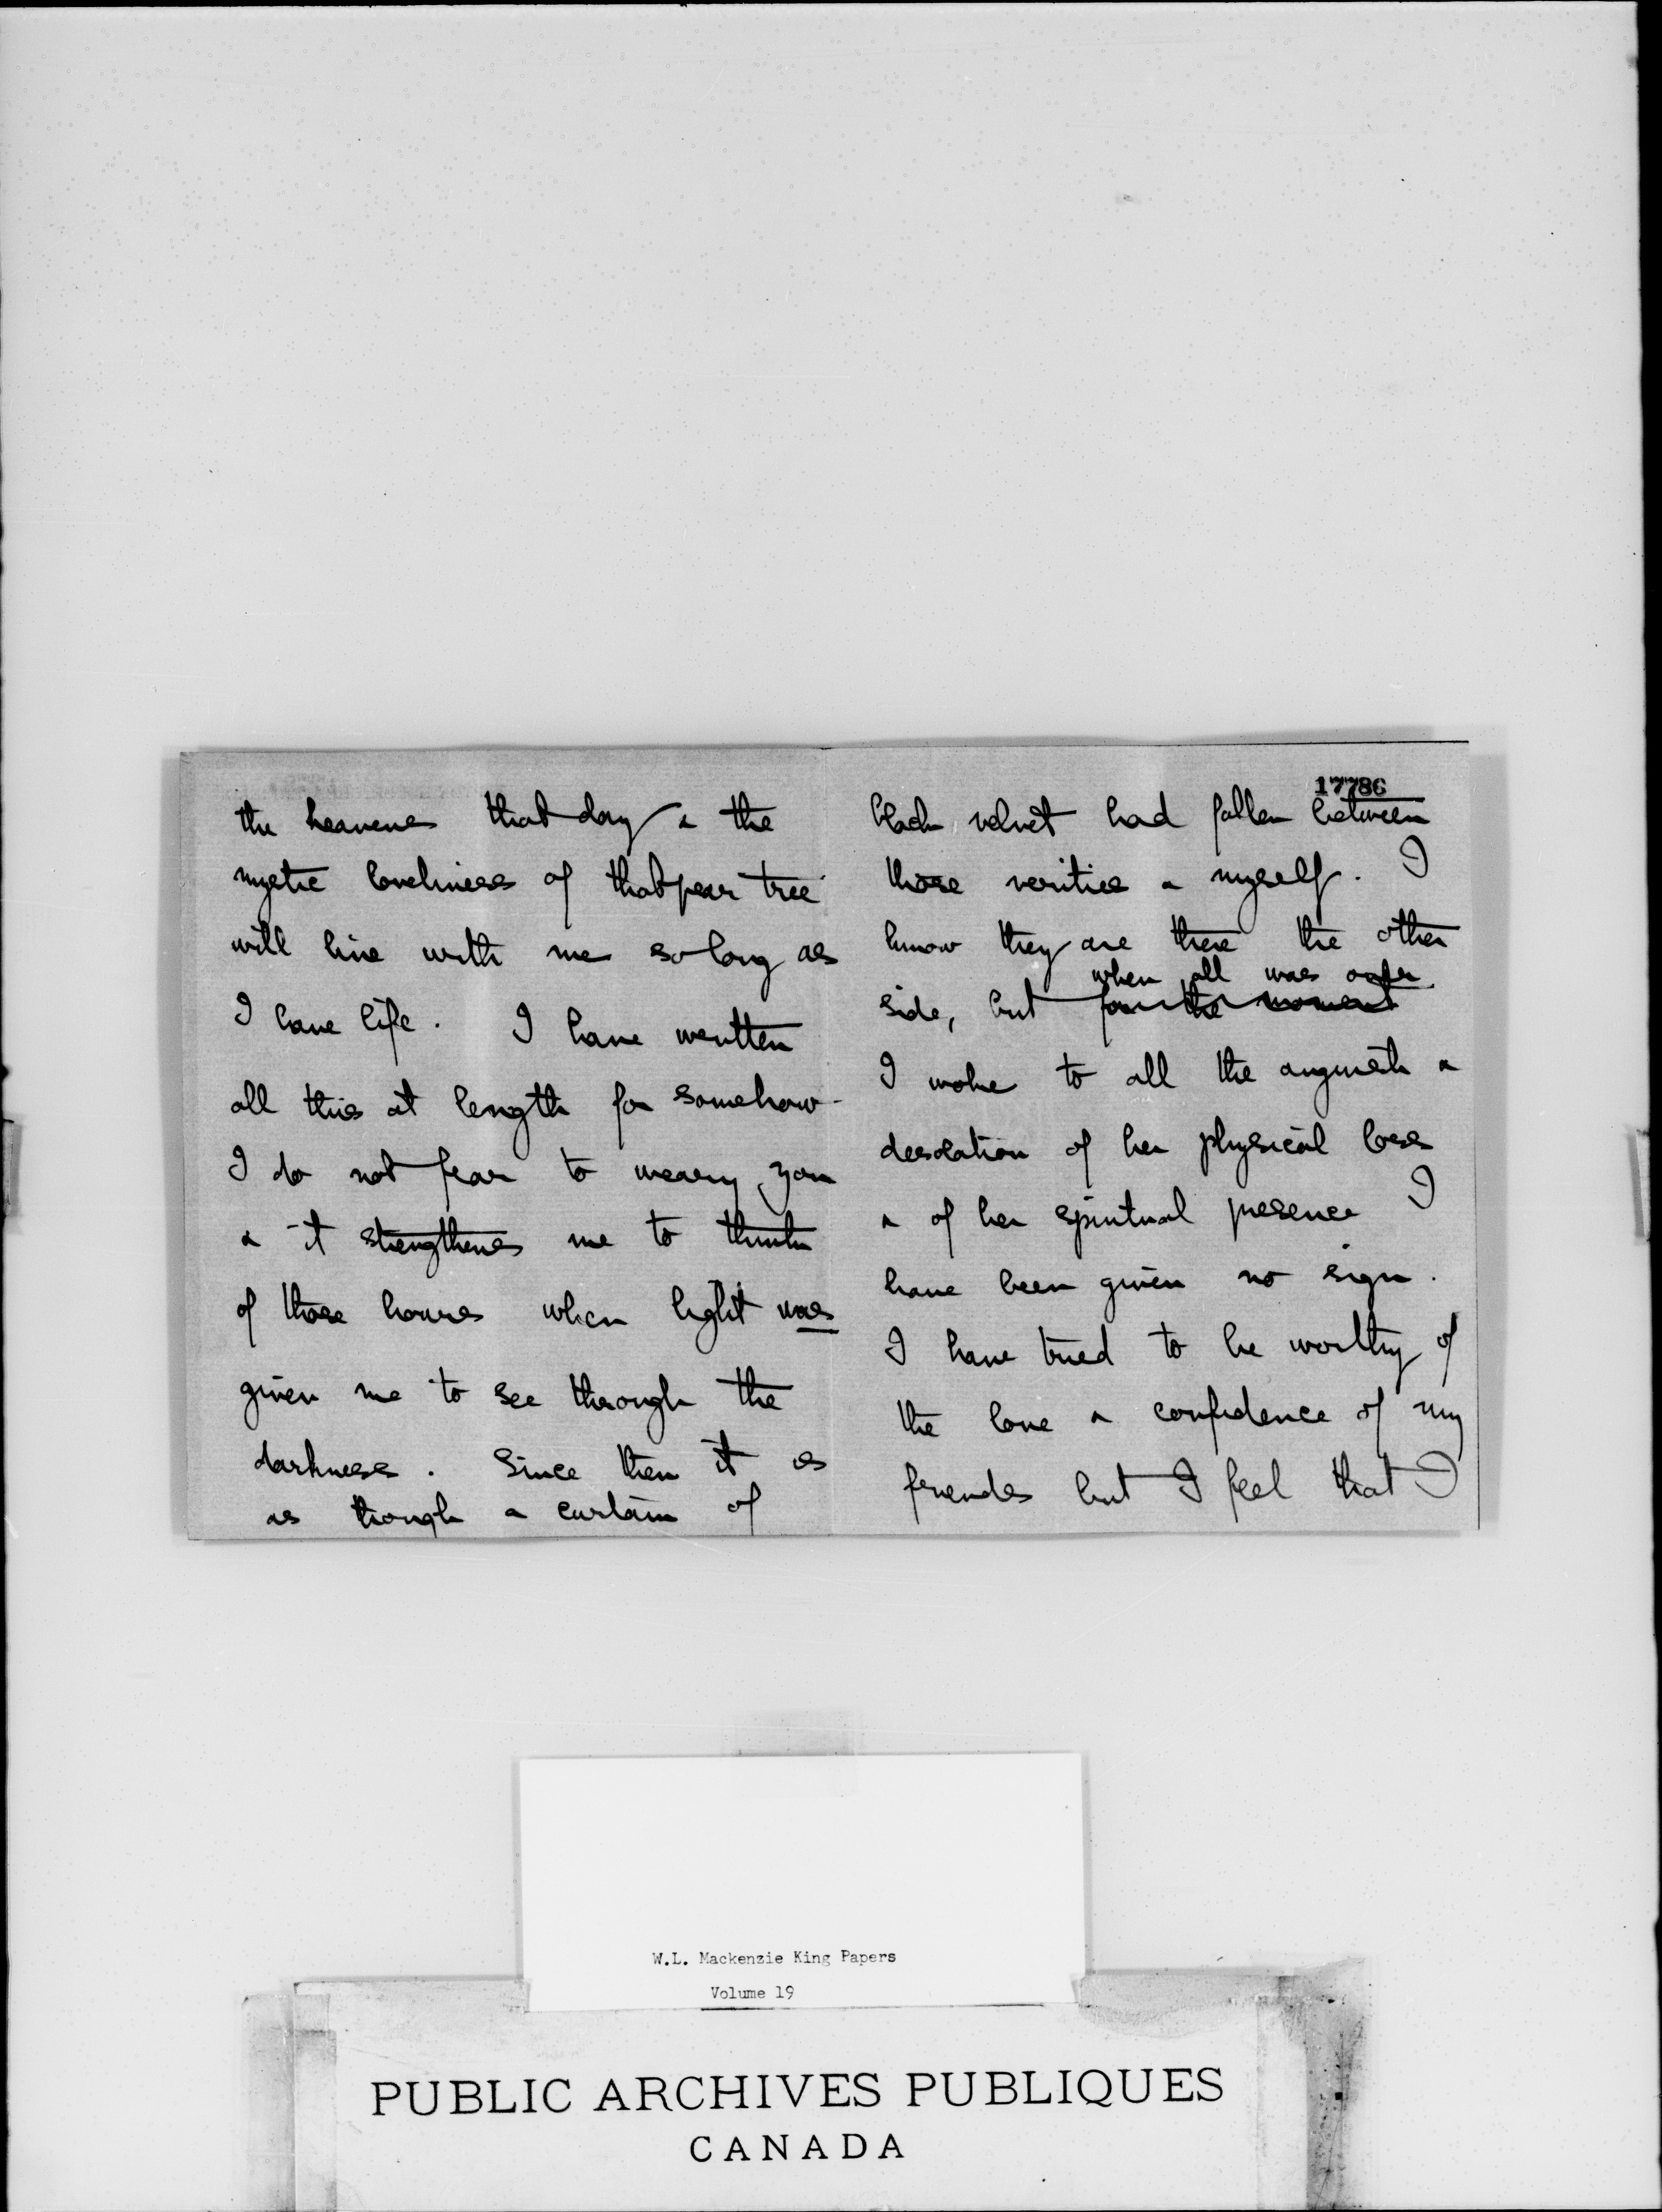 the heavens that day & the
mystic loveliness of that pear tree
will live with me so long as
I have life. I have written
all this at length for somehow
I do not fear to weary you
& it strengthens me to think
of those hours when light was
given me to see through the
darkness. Since then it is
as though a curtain of
17786
black velvet had fallen between
those verities & myself. I
know they are there the other
when all was over
side, but for the moment
I woke to all the anguish &
desolation of her physical loss
& of her spiritual presence I
have been given no sign.
I have tried to be worthy of
the love & confidence of my
friends but I feel that I
W.L. Mackenzie King Papers
Volume 19
PUBLIC ARCHIVES PUBLIQUES
CANADA